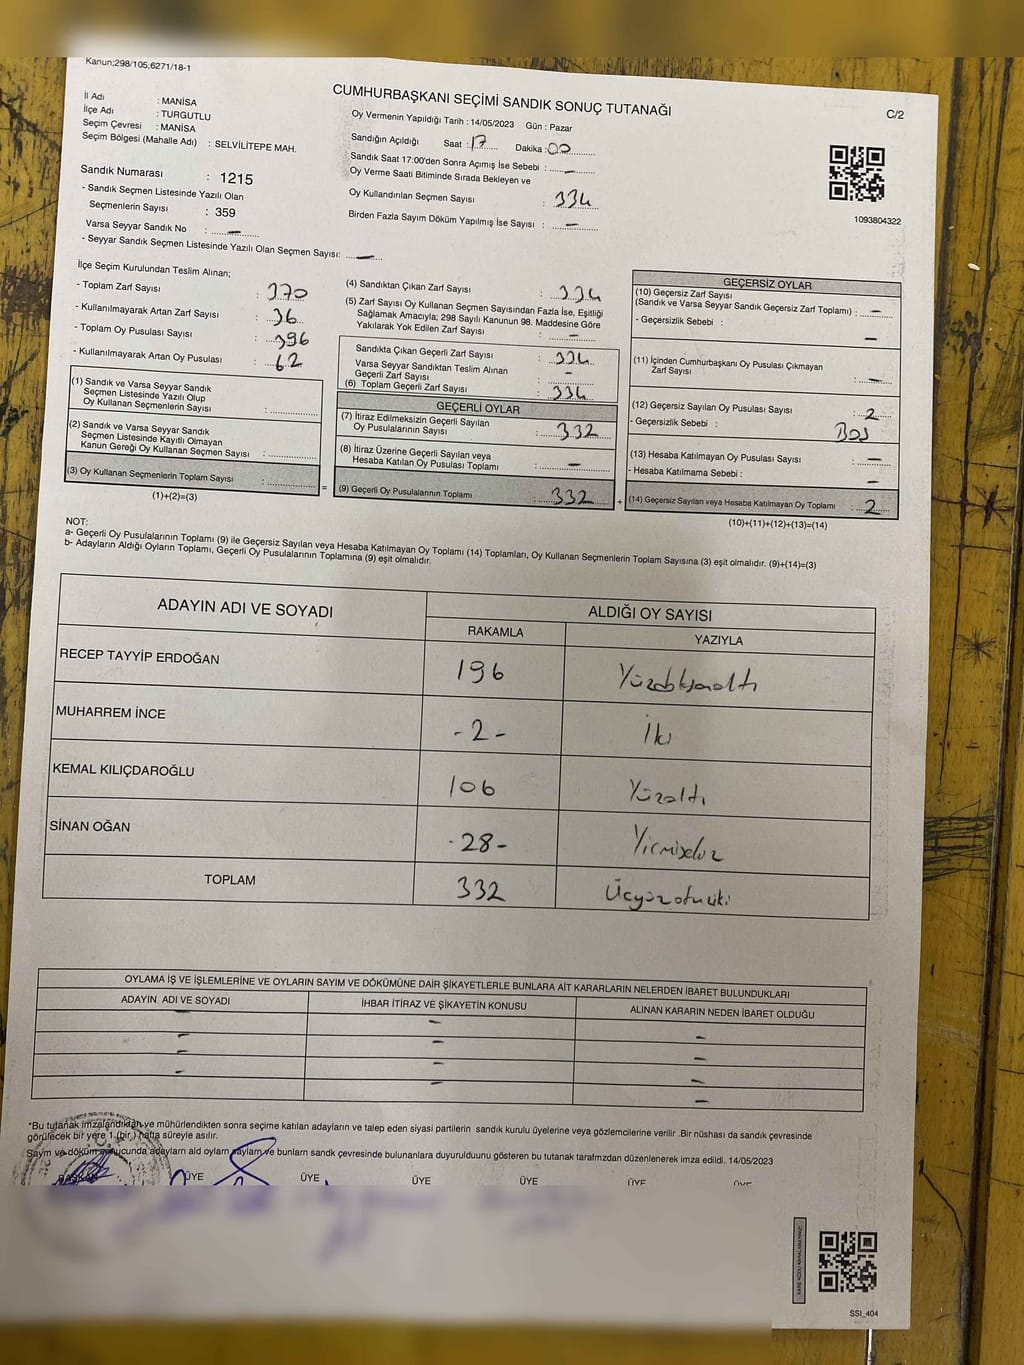 Kanun;298/105,6271/18-1
CUMHURBAŞKANI SEÇİMİ SANDIK SONUÇ TUTANAĞI
C/2
İl Adı : MANİSA
İlçe Adı : TURGUTLU
Seçim Çevresi : MANİSA
Seçim Bölgesi (Mahalle Adı) : SELVİLİTEPE MAH.
Oy Vermenin Yapıldığı Tarih : 14/05/2023 Gün : Pazar
Sandığın Açıldığı Saat : 17 Dakika : 00
Sandık Saat 17:00'den Sonra Açımış İse Sebebi : –
Oy Verme Saati Bitiminde Sırada Bekleyen ve
Oy Kullandırılan Seçmen Sayısı : 334
Birden Fazla Sayım Döküm Yapılmış İse Sayısı : –
1093804322
Sandık Numarası : 1215
- Sandık Seçmen Listesinde Yazılı Olan
Seçmenlerin Sayısı : 359
Varsa Seyyar Sandık No : –
- Seyyar Sandık Seçmen Listesinde Yazılı Olan Seçmen Sayısı: –
İlçe Seçim Kurulundan Teslim Alınan;
- Toplam Zarf Sayısı : 370
- Kullanılmayarak Artan Zarf Sayısı : 36
- Toplam Oy Pusulası Sayısı : 396
- Kullanılmayarak Artan Oy Pusulası : 62
(1) Sandık ve Varsa Seyyar Sandık
Seçmen Listesinde Yazılı Olup
Oy Kullanan Seçmenlerin Sayısı :
(2) Sandık ve Varsa Seyyar Sandık
Seçmen Listesinde Kayıtlı Olmayan
Kanun Gereği Oy Kullanan Seçmen Sayısı :
(3) Oy Kullanan Seçmenlerin Toplam Sayısı :
(1)+(2)=(3)
(4) Sandıktan Çıkan Zarf Sayısı : 334
(5) Zarf Sayısı Oy Kullanan Seçmen Sayısından Fazla İse, Eşitliği
Sağlamak Amacıyla; 298 Sayılı Kanunun 98. Maddesine Göre
Yakılarak Yok Edilen Zarf Sayısı : –
Sandıkta Çıkan Geçerli Zarf Sayısı : 334
Varsa Seyyar Sandıktan Teslim Alınan
Geçerli Zarf Sayısı : –
(6) Toplam Geçerli Zarf Sayısı : 334
GEÇERLİ OYLAR
(7) İtiraz Edilmeksizin Geçerli Sayılan
Oy Pusulalarının Sayısı : 332
(8) İtiraz Üzerine Geçerli Sayılan veya
Hesaba Katılan Oy Pusulası Toplamı : –
= (9) Geçerli Oy Pusulalarının Toplamı : 332
GEÇERSİZ OYLAR
(10) Geçersiz Zarf Sayısı
(Sandık ve Varsa Seyyar Sandık Geçersiz Zarf Toplamı) : –
- Geçersizlik Sebebi : –
(11) İçinden Cumhurbaşkanı Oy Pusulası Çıkmayan
Zarf Sayısı : –
(12) Geçersiz Sayılan Oy Pusulası Sayısı : 2
- Geçersizlik Sebebi : BOŞ
(13) Hesaba Katılmayan Oy Pusulası Sayısı : –
- Hesaba Katılmama Sebebi : –
+ (14) Geçersiz Sayılan veya Hesaba Katılmayan Oy Toplamı : 2
(10)+(11)+(12)+(13)=(14)
NOT:
a- Geçerli Oy Pusulalarının Toplamı (9) ile Geçersiz Sayılan veya Hesaba Katılmayan Oy Toplamı (14) Toplamları, Oy Kullanan Seçmenlerin Toplam Sayısına (3) eşit olmalıdır. (9)+(14)=(3)
b- Adayların Aldığı Oyların Toplamı, Geçerli Oy Pusulalarının Toplamına (9) eşit olmalıdır.
ADAYIN ADI VE SOYADI ALDIĞI OY SAYISI
RAKAMLA YAZIYLA
RECEP TAYYİP ERDOĞAN 196 Yüzdoksanaltı
MUHARREM İNCE - 2 - İki
KEMAL KILIÇDAROĞLU 106 Yüzaltı
SİNAN OĞAN - 28 - Yirmisekiz
TOPLAM 332 Üçyüzotuziki
OYLAMA İŞ VE İŞLEMLERİNE VE OYLARIN SAYIM VE DÖKÜMÜNE DAİR ŞİKAYETLERLE BUNLARA AİT KARARLARIN NELERDEN İBARET BULUNDUKLARI
ADAYIN ADI VE SOYADI İHBAR İTİRAZ VE ŞİKAYETİN KONUSU ALINAN KARARIN NEDEN İBARET OLDUĞU
– – –
– – –
– – –
– – –
*Bu tutanak imzalandıktan ve mühürlendikten sonra seçime katılan adayların ve talep eden siyasi partilerin sandık kurulu üyelerine veya gözlemcilerine verilir .Bir nüshası da sandık çevresinde
görülecek bir yere 1 (bir ) hafta süreyle asılır.
Sayım ve döküm sonucunda adayların ald oyların saylam ve bunların sandk çevresinde bulunanlara duyurulduunu gösteren bu tutanak tarafmzdan düzenlenerek imza edildi. 14/05/2023
BAŞKAN ÜYE ÜYE ÜYE ÜYE ÜYE ÜYE
SSI_404